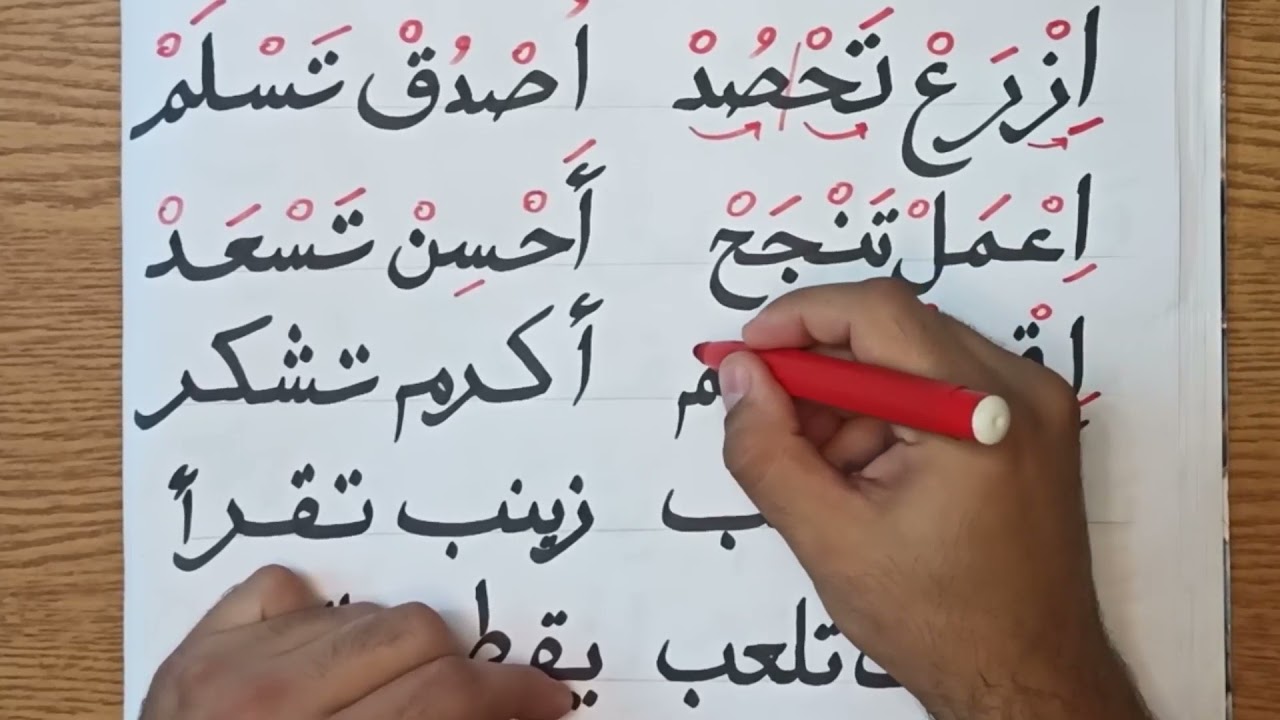 اِزْرَعْ تَحْصُدْ اُصْدُقْ تَسْلَمْ
اِعْمَلْ تَنْجَحْ أَحْسِنْ تَسْعَدْ
أكرم تشكر
زينب تقرأ
تلعب